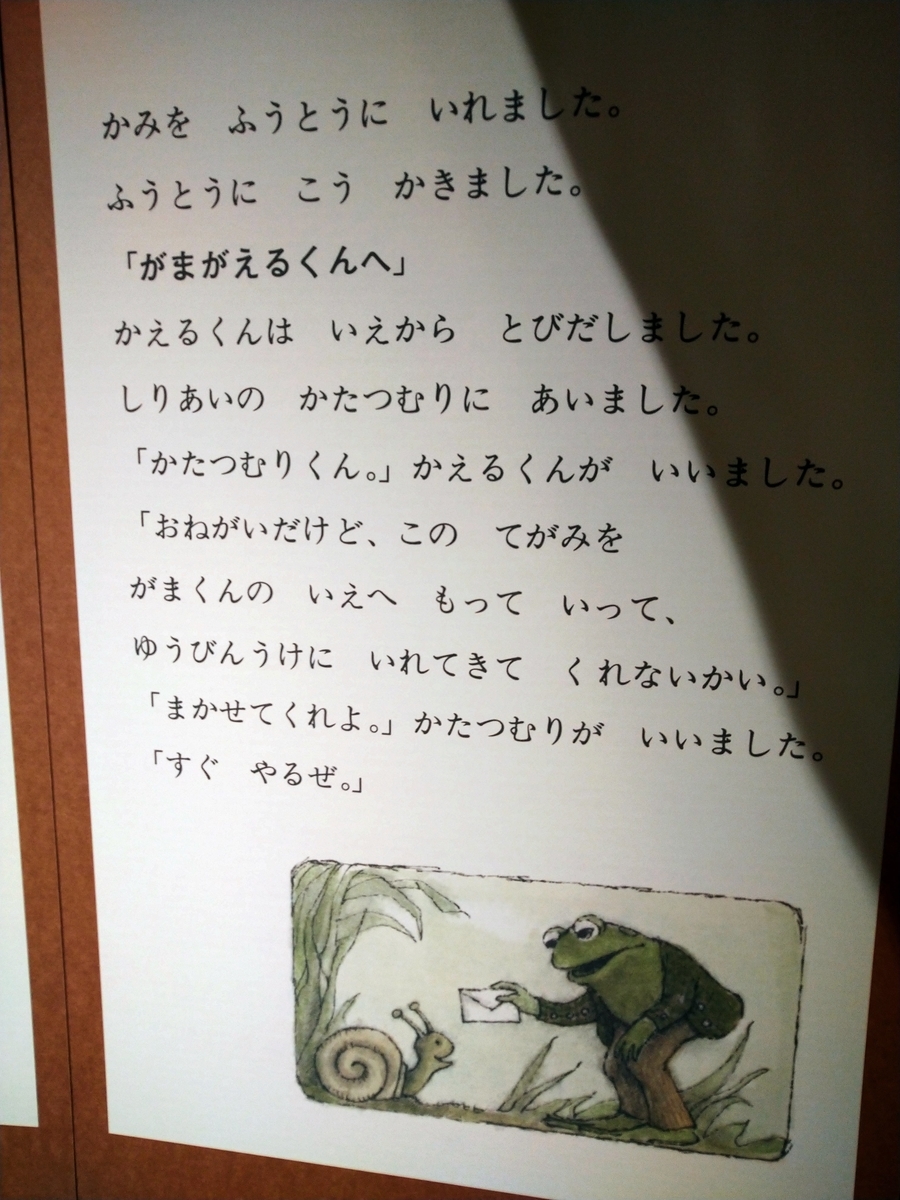 かみを　ふうとうに　いれました。
ふうとうに　こう　かきました。
「がまがえるくんへ」
かえるくんは　いえから　とびだしました。
しりあいの　かたつむりに　あいました。
「かたつむりくん。」かえるくんが　いいました。
「おねがいだけど、この　てがみを
がまくんの　いえへ　もって　いって、
ゆうびんうけに　いれてきて　くれないかい。」
「まかせてくれよ。」かたつむりが　いいました。
「すぐ　やるぜ。」